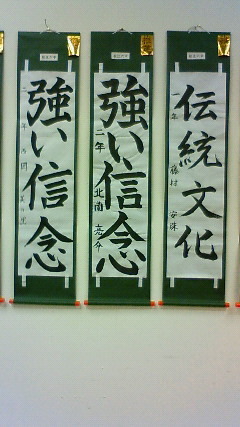 強い信念
二年
強い信念
二年 北南 亮介
伝統文化
一年 藤村